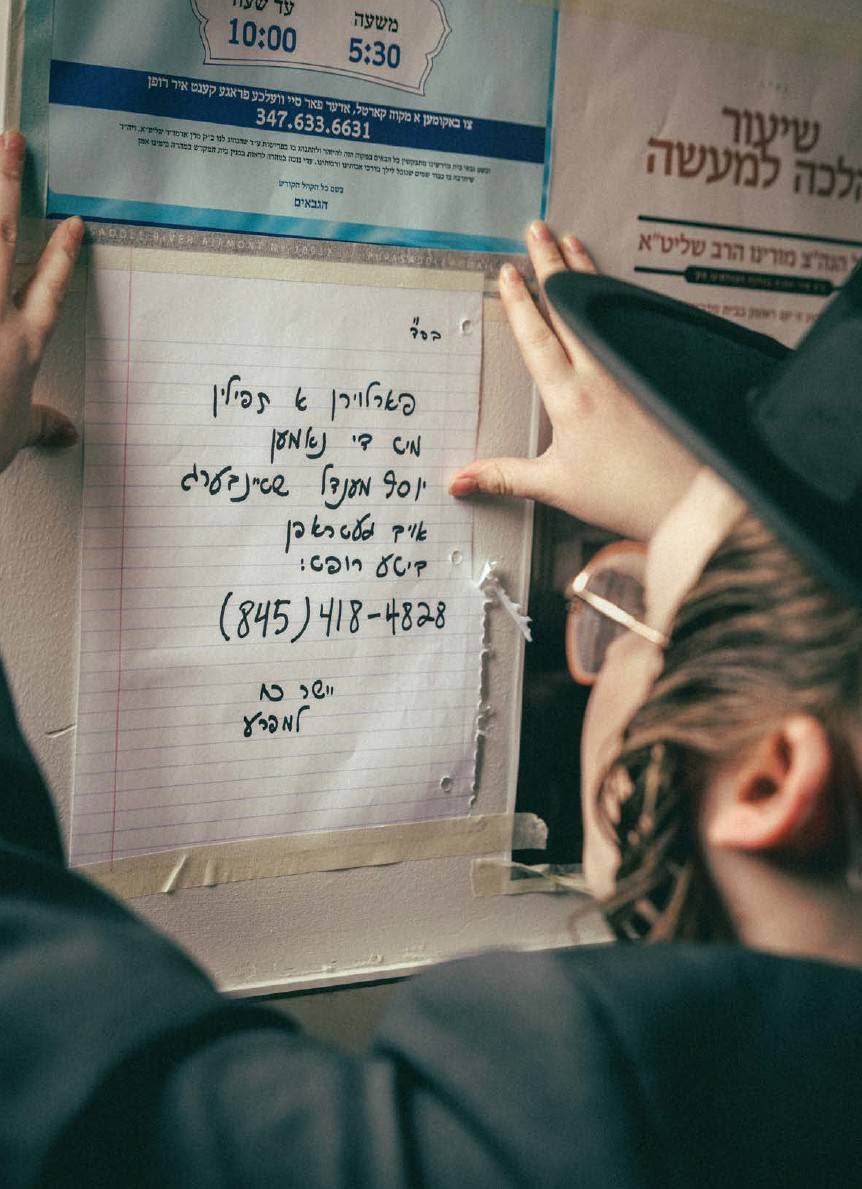 עד שעה
משעה
10:00
5:30
צו באקומען א מקוה קארטל, אדער פאר סיי וועלכע פראגע קענט איר רופן
347.633.6631
בשם כל הקהל הקודש
הגבאים
שיעור
הלכה למעשה
הגה"צ מורינו הרב שליט"א
בס"ד
פארלוירן א תפילין
מיט די נאמען
יוסף מענדל שטיינבערג
אויב געטראפן
ביטע רופט:
(845) 418-4828
יישר כח
למפרע